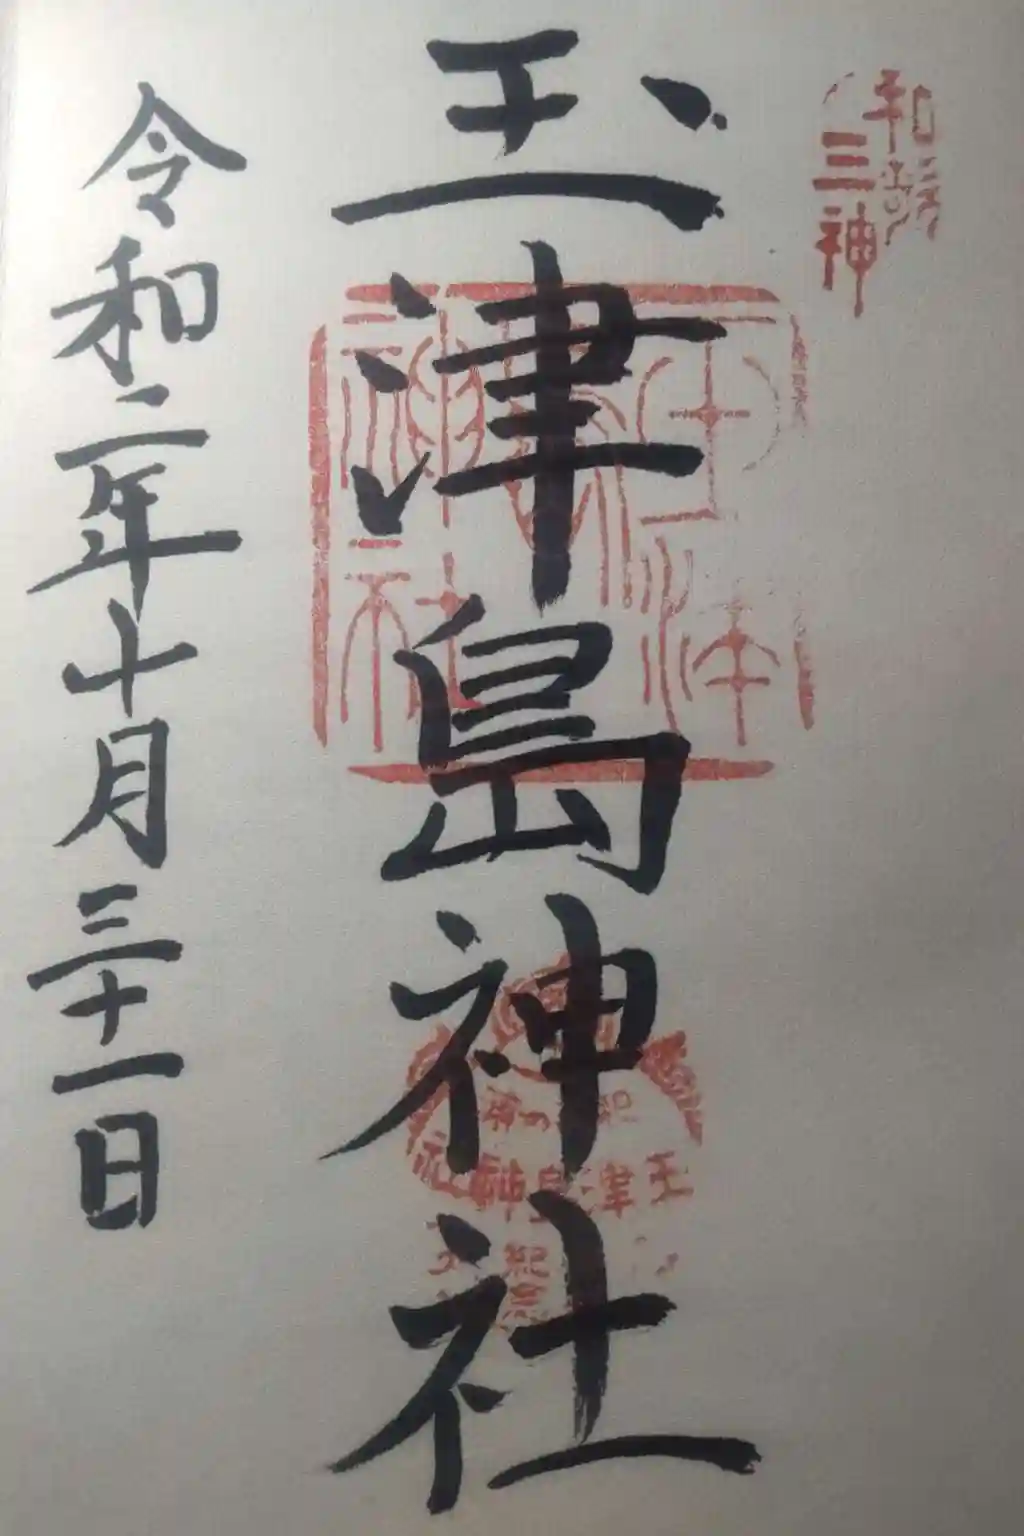 和歌
三神
玉津島神社
玉津島神社
玉津島神社
令和二年十月三十一日